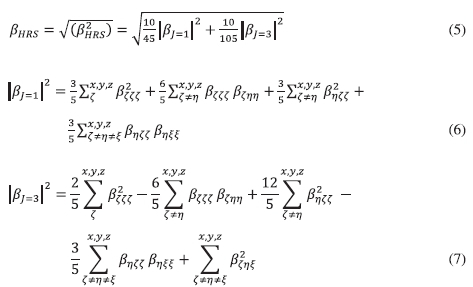 β_HRS = √(⟨β²_HRS⟩) = √(10/45 |β_J=1|² + 10/105 |β_J=3|²) (5)
|β_J=1|² = 3/5 Σ_ζ^x,y,z β²_ζζζ + 6/5 Σ_ζ≠η^x,y,z β_ζζζ β_ζηη + 3/5 Σ_ζ≠η^x,y,z β²_ηζζ +
3/5 Σ_ζ≠η≠ξ^x,y,z β_ηζζ β_ηξξ (6)
|β_J=3|² = 2/5 Σ_ζ^x,y,z β²_ζζζ − 6/5 Σ_ζ≠η^x,y,z β_ζζζ β_ζηη + 12/5 Σ_ζ≠η^x,y,z β²_ηζζ −
3/5 Σ_ζ≠η≠ξ^x,y,z β_ηζζ β_ηξξ + Σ_ζ≠η≠ξ^x,y,z β²_ζηξ (7)